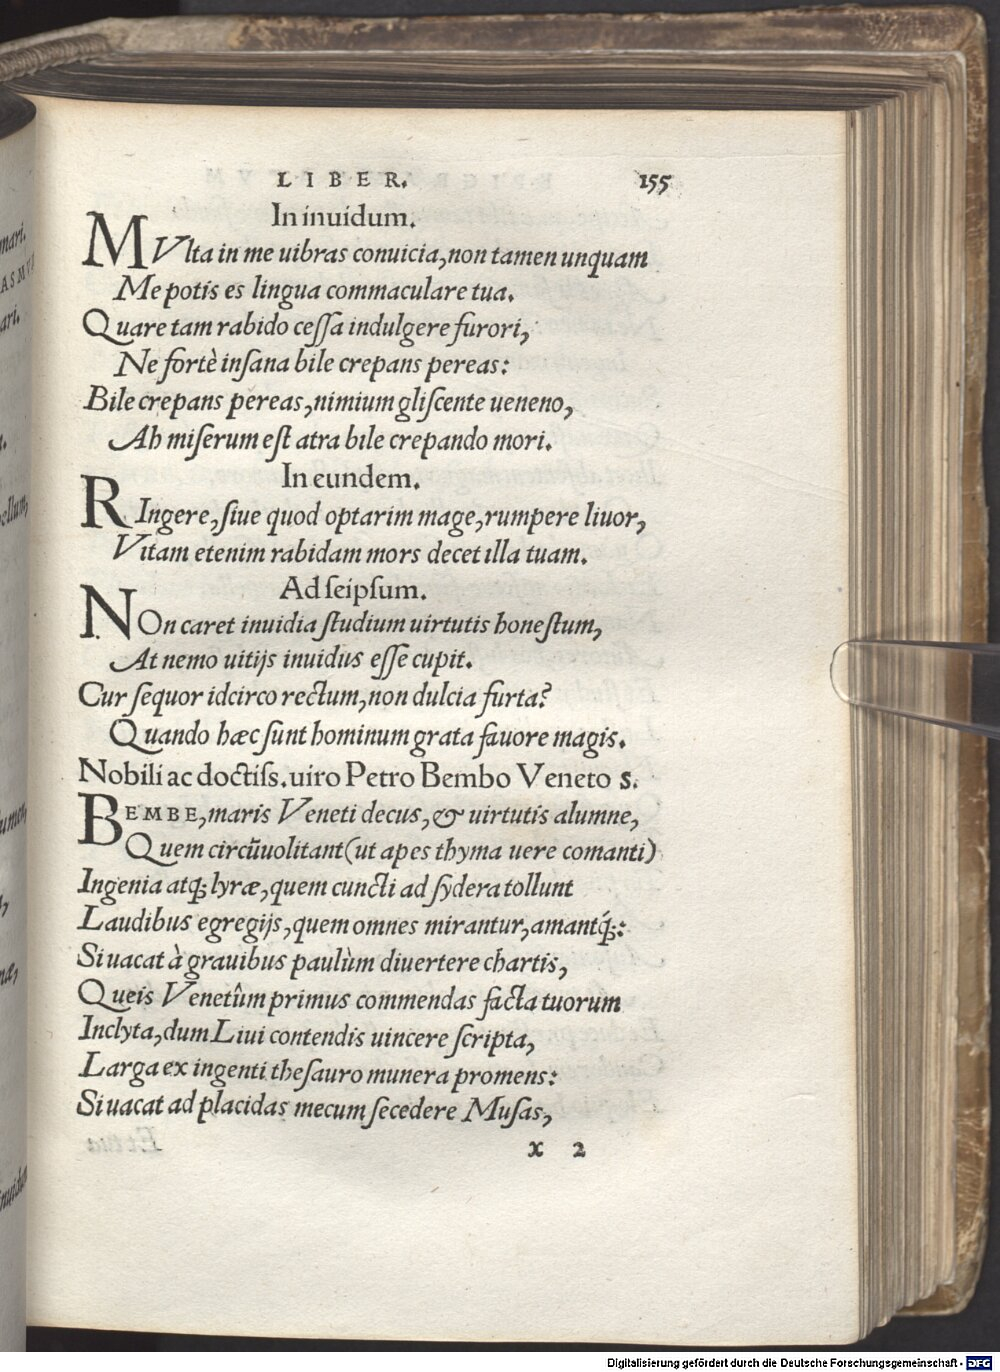 LIBER. 155
In inuidum.
MVlta in me uibras conuicia, non tamen unquam
Me potis es lingua commaculare tua.
Quare tam rabido ceſſa indulgere furori,
Ne fortè inſana bile crepans pereas:
Bile crepans pereas, nimium gliſcente ueneno,
Ah miſerum eſt atra bile crepando mori.
In eundem.
RIngere, ſiue quod optarim mage, rumpere liuor,
Vitam etenim rabidam mors decet illa tuam.
Ad ſeipſum.
NOn caret inuidia ſtudium uirtutis honeſtum,
At nemo uitijs inuidus eſſe cupit.
Cur ſequor idcirco rectum, non dulcia furta?
Quando hæc ſunt hominum grata fauore magis.
Nobili ac doctiſs. uiro Petro Bembo Veneto S.
BEMBE, maris Veneti decus, & uirtutis alumne,
Quem circũuolitant (ut apes thyma uere comanti)
Ingenia atq; lyræ, quem cuncti ad ſydera tollunt
Laudibus egregijs, quem omnes mirantur, amantq́;:
Si uacat à grauibus paulùm diuertere chartis,
Queis Venetûm primus commendas facta tuorum
Inclyta, dum Liui contendis uincere ſcripta,
Larga ex ingenti theſauro munera promens:
Si uacat ad placidas mecum ſecedere Muſas,
X 2
mari.
ASMV
ari.
ellum,
Digitalisierung gefördert durch die Deutsche Forschungsgemeinschaft - DFG